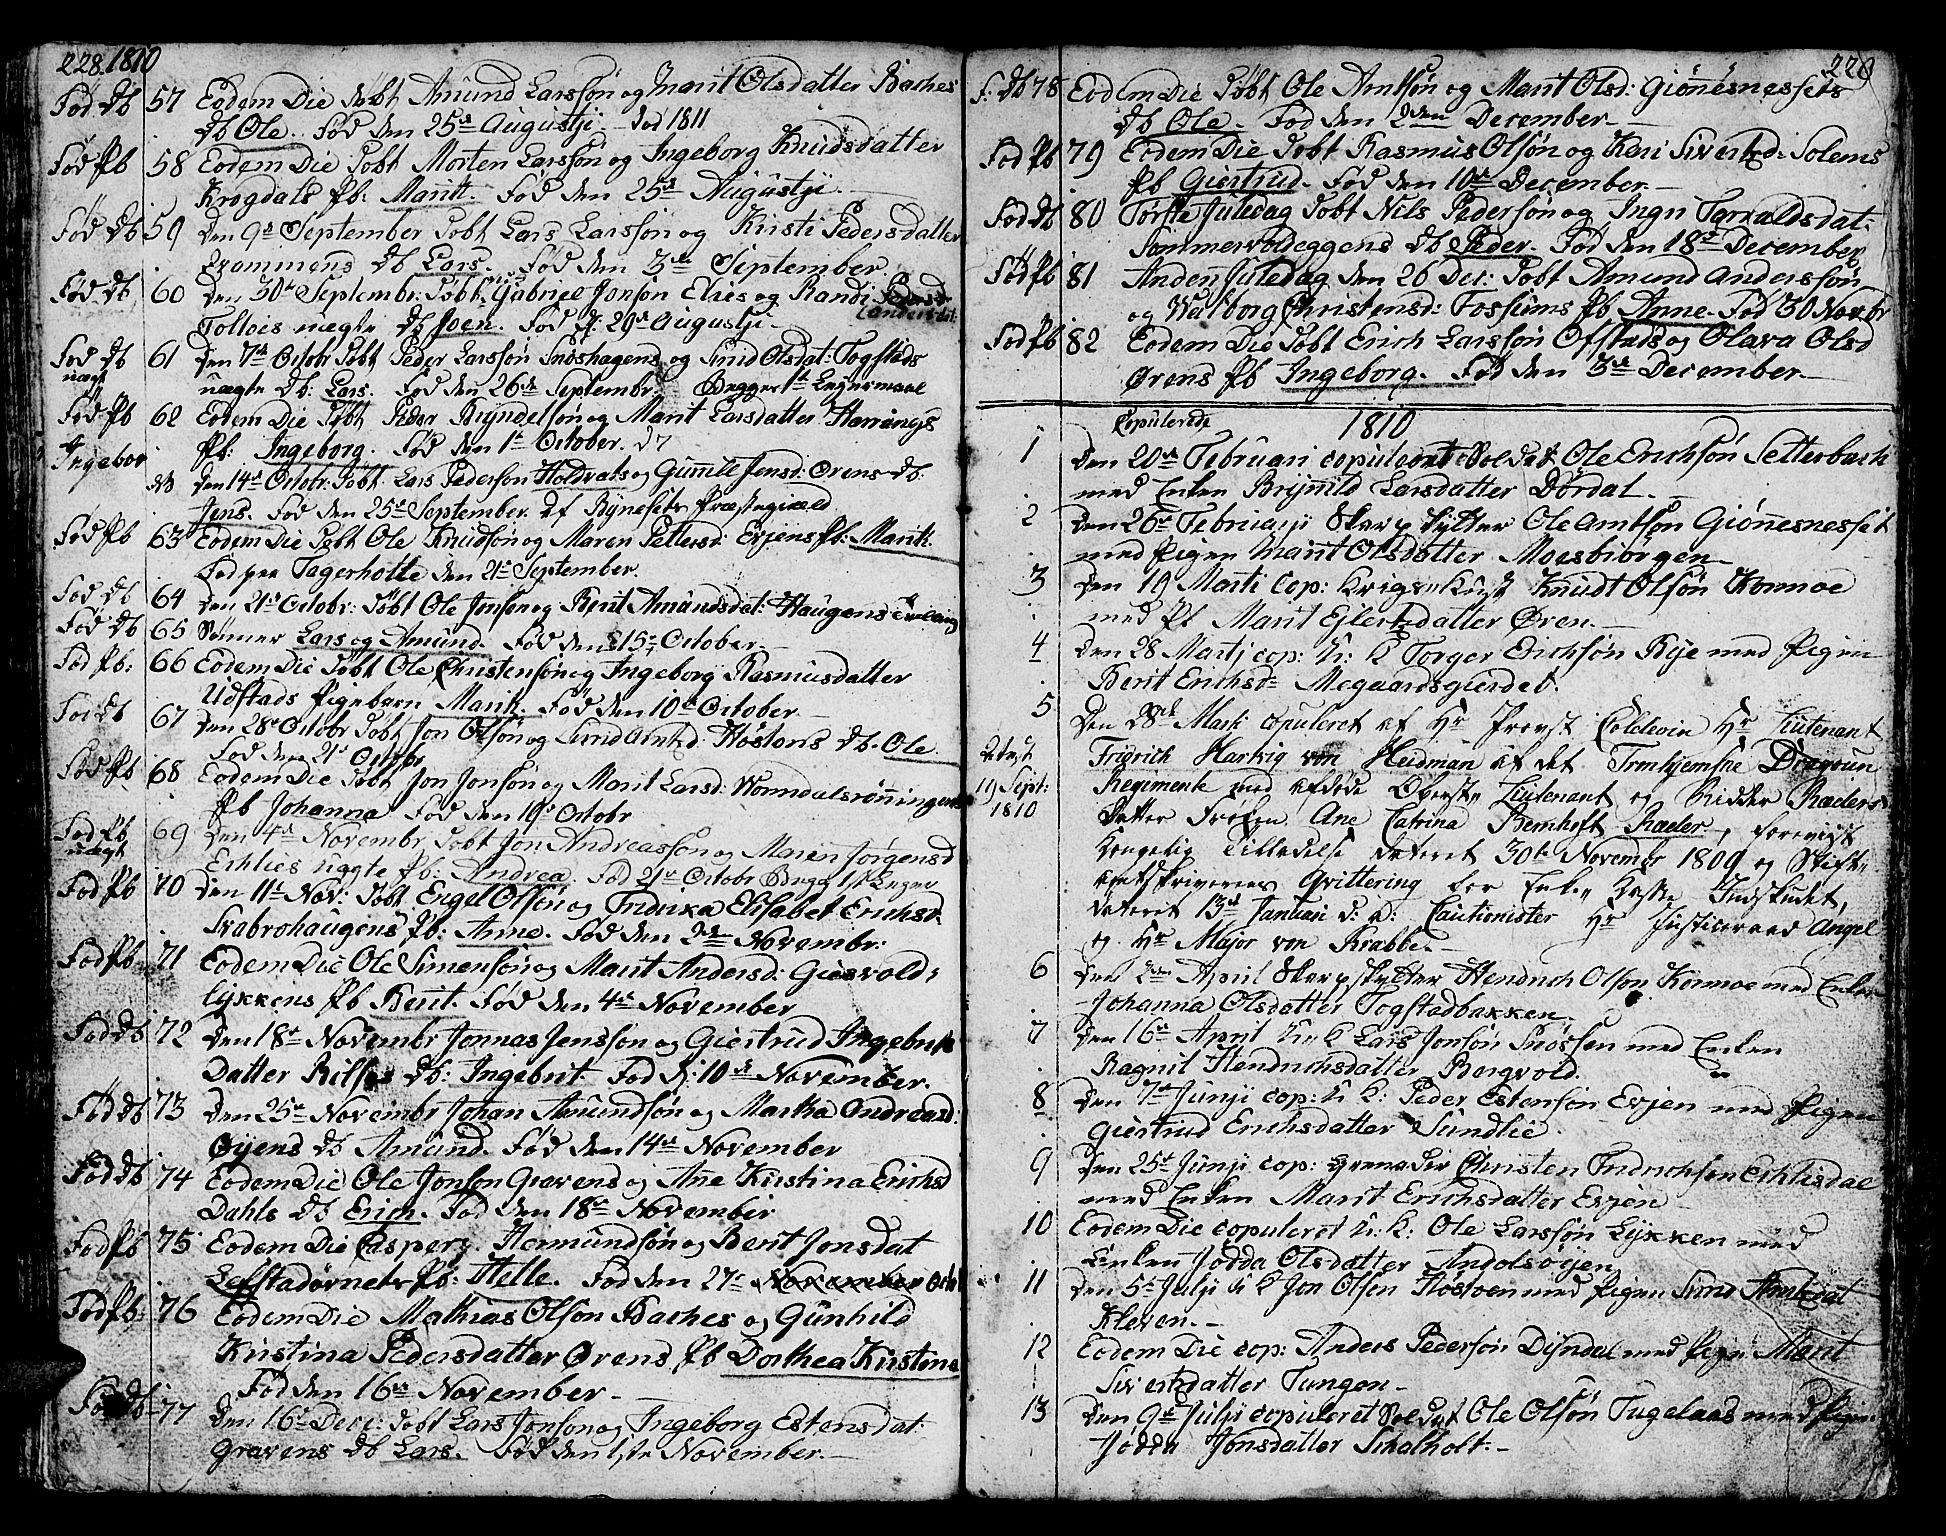 228. 1810
Fød Db 57 Eodem Die døbt Amund Larssøn og Marit Olsdatter Baches
Db Ole. Fød den 25de Augustji - død 1811
Fød Pb 58 Eodem Die Døbt Morten Larssøn og Ingeborg Knudsdatter
Krogdals Pb: Marit. Fød den 25de Augustji.
Fød Db 59 Den 9de September Døbt Lars Larssøn og Kristi Pedersdatter
Evammens Db Lars. Fød den 3de September.
Fød Db 60 Den 30te Septembr: Døbt Gabriel Jonsøn Elies og Randi
Andersdat:
Tolloes uægte Db Joen. Fød d: 29de Augustji.
Fød Db 61 Den 7de Octobr Døbt Peder Larssøn Snoshagens og Sirid Olsdat: Togstads
uægt
uægte Db: Lars. Fød den 26de Septembr. Begges 1te Leyermaal
Fød Pb 62 Eodem Die Døbt Peder Bryndelsøn og Marit Larsdatter Horrings
Pb: Ingeborg. Fød den 1te October. d 7
Ingebor
Db Den 14de Octobr: Døbt Lars Pedersøn Holdvats og Gunnild Jensd: Ørens Db:
Jens. Fød den 25de September. Af Bynesets Præstegiæld
Fød Pb 63 Eodem Die Døbt Ole Knudsøn og Maren Pettersd: Evjens Pb: Marit.
Fød paa Tagerholte den 21de September.
Fød Db 64 Den 21de Octobr: Døbt Ole Jonsøn og Berit Amundsdat: Haugens Tvilling
Fød Db 65 Sønner Lars og Amund. Fød den 15de October.
Fød Pb: 66 Eodem Die Døbt Ole Christensøn og Ingeborg Rasmusdatter
Udstads Pigebarn Marit. Fød den 10de October.
Fød Db 67 Den 28de Octobr Døbt Jon Olsøn og Sirid Arntsd: Høstons Db. Ole.
Fød den 21de Octobr
Fød Pb 68 Eodem Die Døbt Jon Jonsøn og Marit Larsd: Wormdalsrønningens
Pb Johanna Fød den 19de Octobr
Fød Pb 69 Den 4de Novembr Døbt Jon Andreassøn og Maren Jørgensd
uægt
Echlies uægte Pb: Andrea. Fød 21de Octobr Begg 1st Leyer
Fød Pb 70 Den 11te Nov: Døbt Engel Olsøn og Fridrixa Elisabet Erichsd
Skabrohaugens Pb: Anne. Fød den 2den Novembr:
Fød Pb 71 Eodem Die Ole Simensøn og Marit Andersd: Giesvold-
lykkens Pb Berit. Fød den 4de November
Fød Db 72 Den 18de Novembr Jonnas Jensson og Giertrud Ingebrits
Datter Bilses Db: Ingebrit. Fød d: 10de November.
Fød Db 73 Den 25de Novembr Johan Amundsøn og Martha Andreasd:
Øyens Db Amund. Fød den 14de November
Fød Db 74 Eodem Die Ole Jonsøn Gravens og Ane Kirstina Erichsd
Dahls Db Erich. Fød den 18de November
Fød Pb 75 Eodem Die Casperz Hermundsøn og Berit Jonsdat
Lefstadørnets Pb: Helle. Fød den 27de November Octb
Fød Pb: 76 Eodem Die Mathias Olsøn Baches og Gunhild
Kirstina Pedersdatter Ørens Pb Dorthea Kirstina
Fød den 16de November.
Fød Db 77 Den 16de Dec: Døbt Lars Jonsøn og Ingeborg Estensdat:
Gravens Db Lars. Fød den 1ste November.
229
F: Db 78 Eodem Die Døbt Ole Arntsøn og Marit Olsd: Giønnesnessets
Db Ole. Fød den 2den December.
Fød Pb 79 Eodem Die Døbt Rasmus Olsøn og Kari Sivertsd: Solems
Pb Giertrud. Fød den 10de December.
Fød Db 80 Første Juledag Døbt Nils Pedersøn og Ingri Tarraldsdat:
Sommervoldeggens Db Peder. Fød den 18de December.
Fød Pb 81 Anden Juledag den 26 Dec: Døbt Amund Anderssøn
og Walborg Christensd: Fossums Pb Anne. Fød 30 Novbr
Fød Pb 82 Eodem Die Døbt Erich Larssøn Ofstads og Olava Olsd
Ørens Pb Ingeborg. Fød den 3de December.
Copulerede 1810
1 Den 20de Februari copuleert Soldat Ole Erichsøn Setterbach
med Enken Brynnild Larsdatter Dørdal.
2 Den 26de Februarji Skarpskytter Ole Arntsøn Giønnesnesset
med Pigen Marit Olsdatter Moesbiørgen
3 Den 19 Marti cop: Krigs Knegt Knudt Olsøn Konmoe
med Pb Marit Ejlertsdatter Øren.
4 Den 28 Martj cop: u: K Torger Erichsøn Rye med Pigen
Berit Erichsd: Megaardsgierdet.
5 Den 28de Marti copuleret af Hr Provst Coldevin Hr Lieutenant
Fridrich Hartvig von Heidman af det Trondhjemske Dragoun
Regimente med afdøde Øverste Lieutenant og Ridder Ræders
Datter Frøken Ane Catrina Bernhoft Ræder, foreviist
attest
19 Sept:
1810
Kongelig Tilladelse dateret 30te Novembr 1809 og Stift-
amtskriverens Qvittering for Enke Kasse Indskudet,
dateret 13de Januari d: A: Cautionister Hr Justiceraad Angel
og Hr Major von Krabbe.
6 Den 2den April Skarpskytter Hendrich Olsøn Konmoe med Enken
Johanna Olsdatter Togstadbakken.
7 Den 16de April u: K Lars Jonsøn Snøssen med Enken
Ragnil Hendrichsdatter Bergvold.
8 Den 7de Junji cop: u: K: Peder Estensøn Evjen med Pigen
Giertrud Erichsdatter Sundlie.
9 Den 25de Junji cop: Grenader Christen Fridrichsøn Echlisdal
med Enken Marit Erichsdatter Evjen
10 Eodem Die copuleret u: K: Ole Larssøn Lykken med
Enken Jødda Olsdatter Andolsøyen
11 Den 5de Julji u K Jon Olsøn Høstoen med Pigen Sirid Arntsdat
Kleven.
12 Eodem Die cop: Anders Pedersøn Disndal med Pigen Marit
Sivertsdatter Tungen.
13 Den 9de Julji copuleret Soldat Ole Olsøn Tugelaas med Pigen
Jødda Jonsdatter Schalholt.